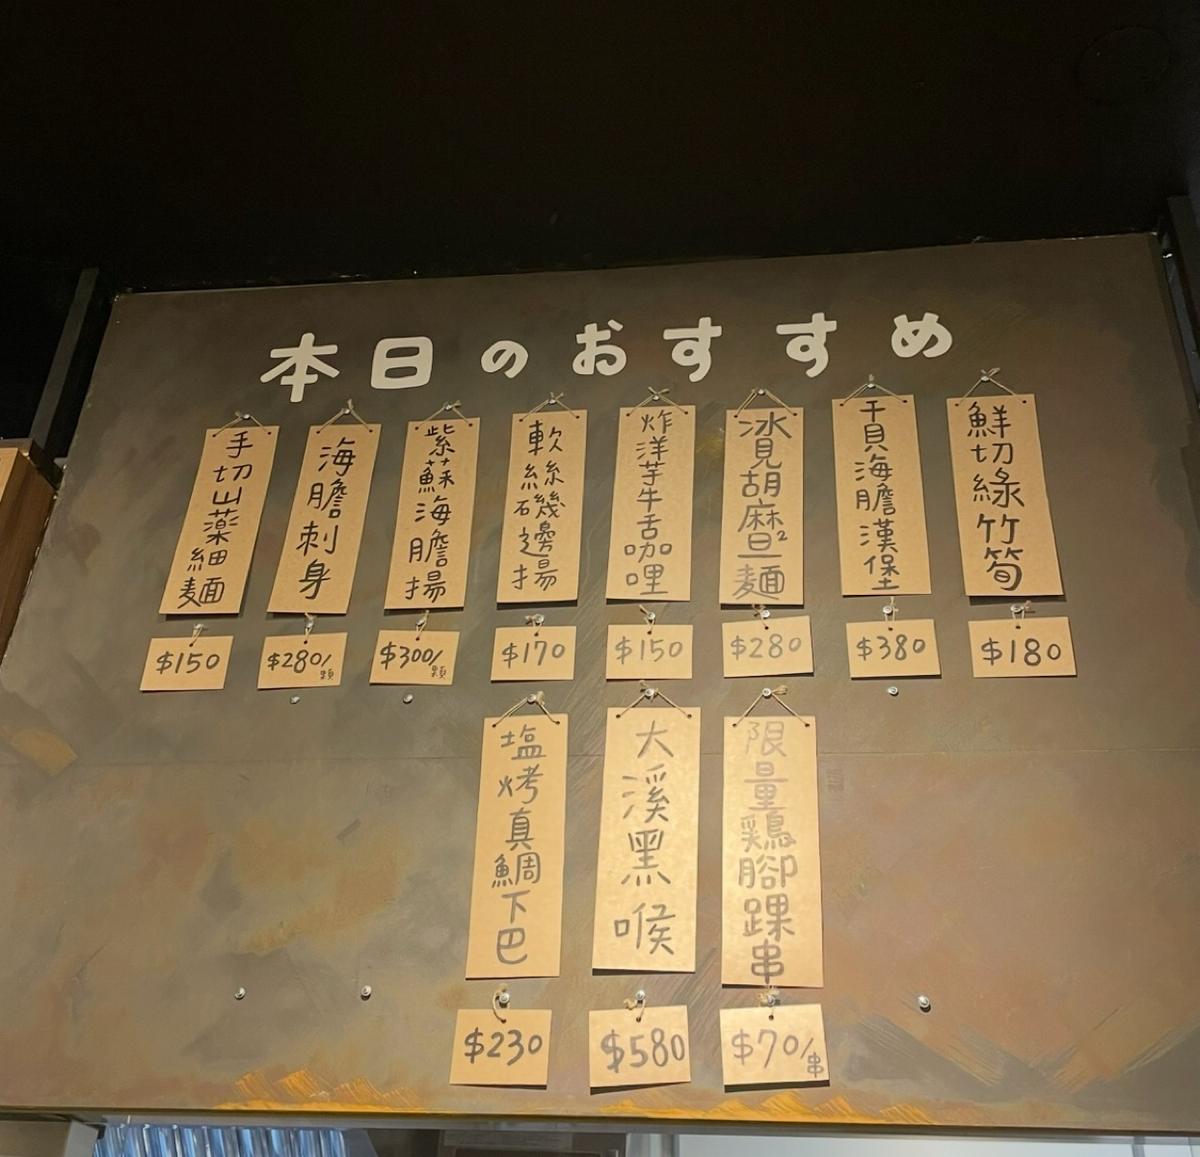 本日のおすすめ
手切山薬細麺
$150
海膽刺身
$280/顆
紫蘇海膽揚
$300/顆
軟絲磯邊揚
$170
炸洋芋牛舌咖哩
$150
氷見胡麻担2麺
$280
干貝海膽漢堡
$380
鮮切綠竹筍
$180
塩烤真鯛下巴
$230
大溪黑喉
$580
限量鶏腳踝串
$70/串